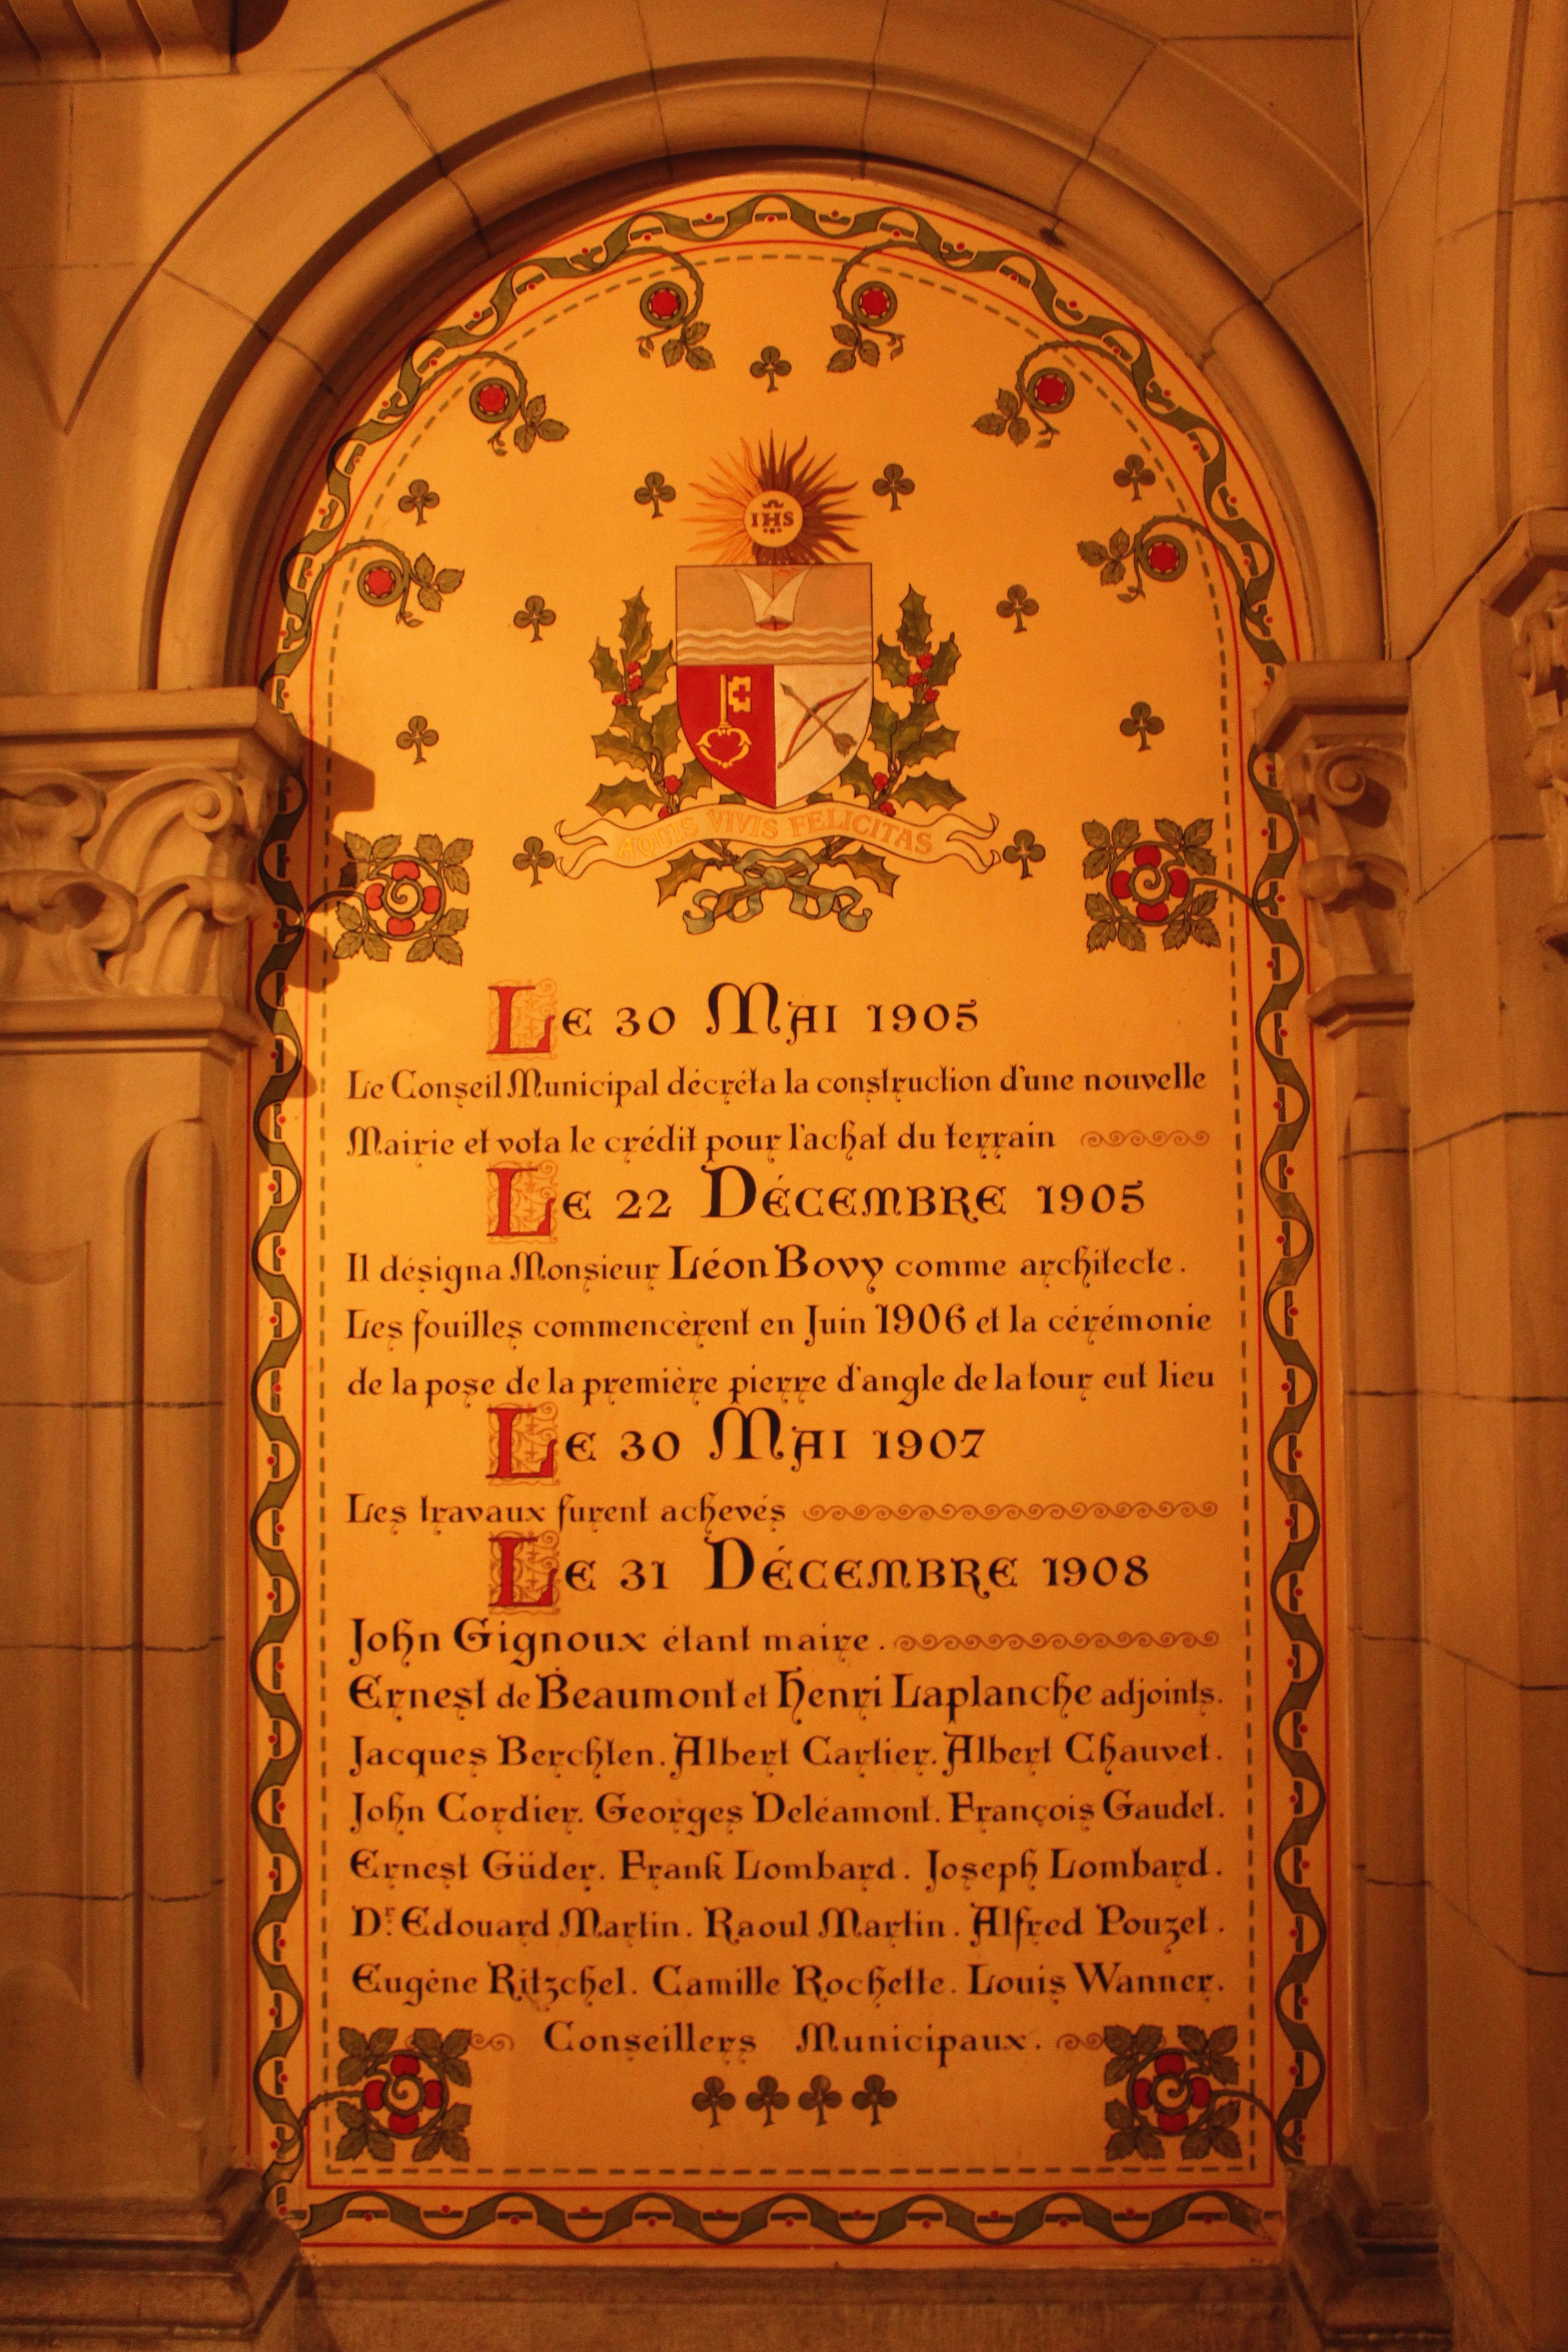 IHS
AQUIS VIVIS FELICITAS
Le 30 Mai 1905
Le Conseil Municipal décréta la construction d'une nouvelle
Mairie et vota le crédit pour l'achat du terrain
Le 22 Décembre 1905
Il désigna Monsieur Léon Bovy comme architecte.
Les fouilles commencèrent en Juin 1906 et la cérémonie
de la pose de la première pierre d'angle de la tour eut lieu
Le 30 Mai 1907
Les travaux furent achevés
Le 31 Décembre 1908
John Gignoux étant maire.
Ernest de Beaumont et Henri Laplanche adjoints.
Jacques Berchten. Albert Cartier. Albert Chauvet.
John Cordier. Georges Deléamont. François Gaudet.
Ernest Güder. Frank Lombard. Joseph Lombard.
Dr. Edouard Martin. Raoul Martin. Alfred Pouzet.
Eugène Ritzchel. Camille Rochette. Louis Wanner.
Conseillers Municipaux.